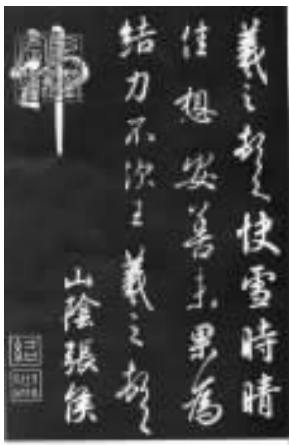 羲之頓首快雪時晴
佳想安善未果為
結力不次王羲之頓首
山陰張侯
神